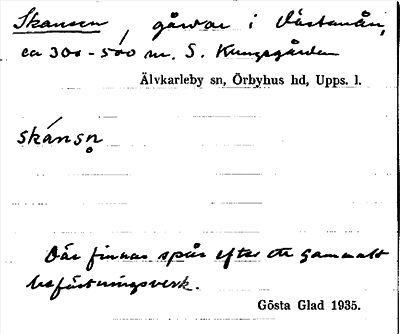 Skansen, gårdar i Västanån,
ca 300-500 m. S. Kungsgården
Älvkarleby sn, Örbyhus hd, Upps. l.
skánsn̥
Där finnas spår efter ett gammalt
befästningsverk.
Gösta Glad 1935.